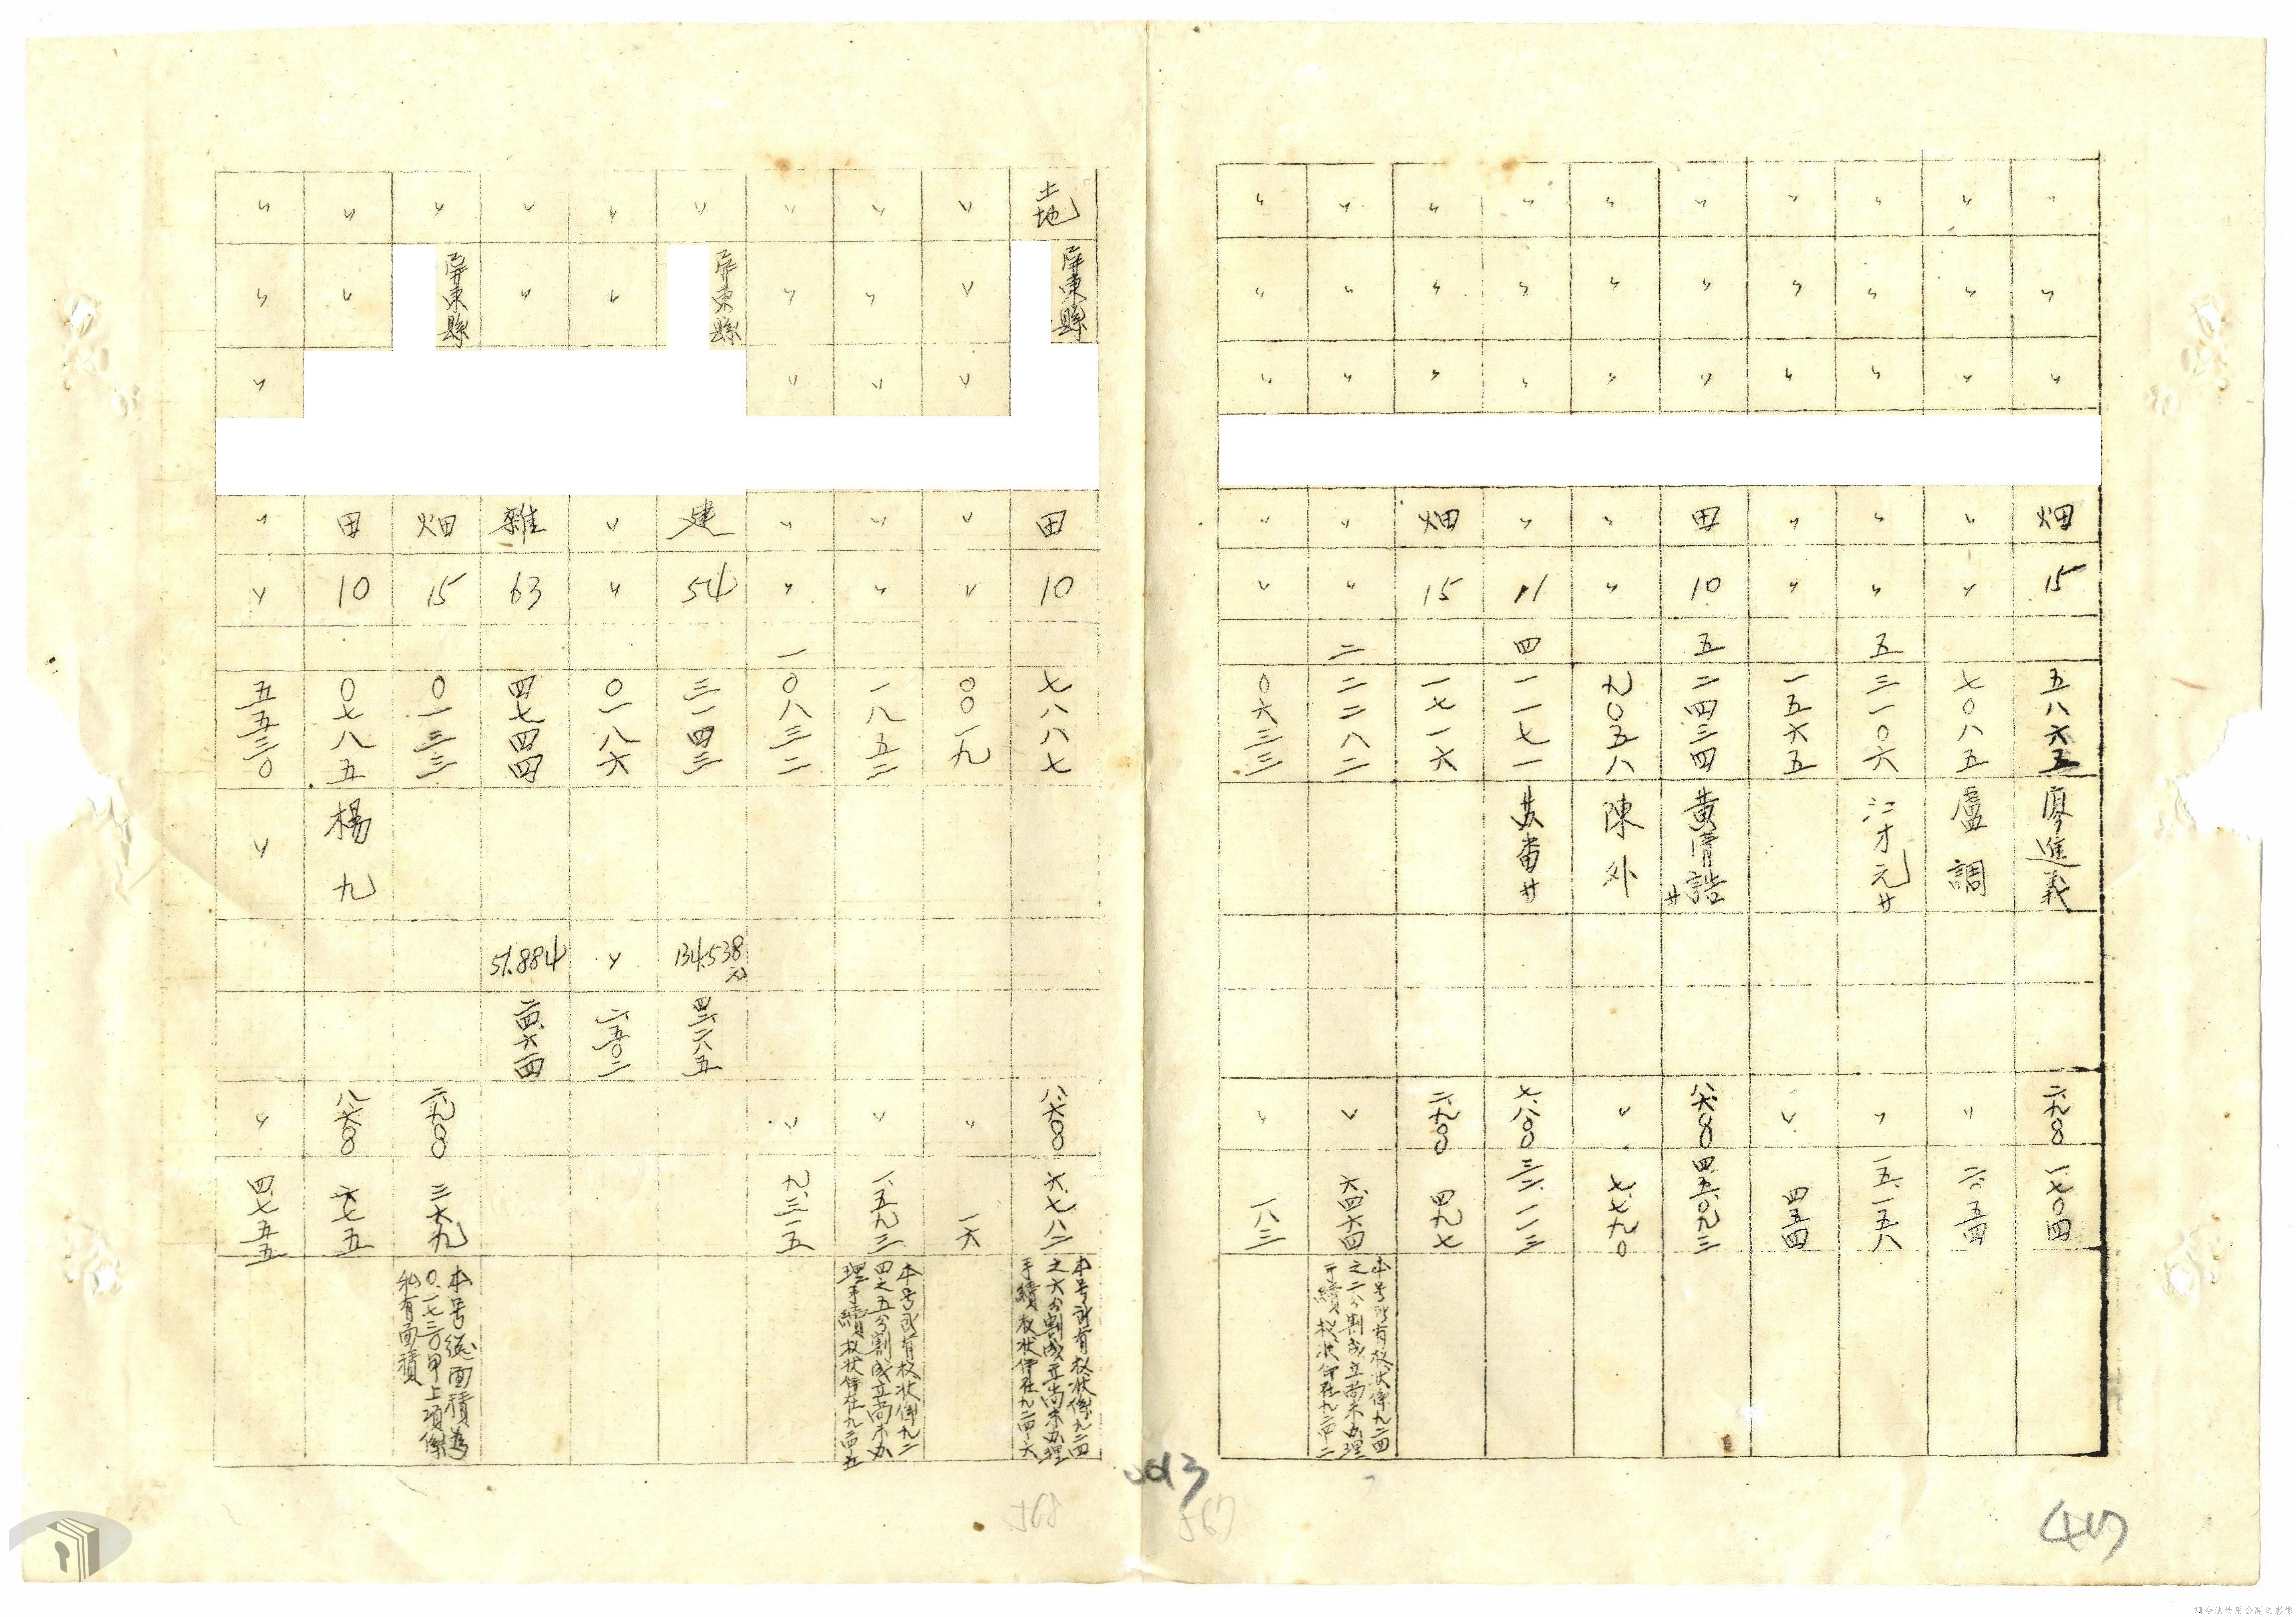 〃 〃 〃 畑 15 五八六五 廖進義 二.九〇〇 一.七〇四
〃 〃 〃 〃 〃 七〇八五 盧調 〃 二.〇五四
〃 〃 〃 〃 〃 五 三一〇六 江才元外 〃 一五.一五八
〃 〃 〃 〃 〃 一五六五 〃 四五四
〃 〃 〃 田 10 五 二四三四 黃清誥外 八.六〇〇 四五.〇九三
〃 〃 〃 〃 〃 九〇五八 陳外 〃 七.七九〇
〃 〃 〃 〃 11 四 一一七一 苏番外 七.八〇〇 三二.一一三
〃 〃 〃 畑 15 一七一六 二.九〇〇 四九七
〃 〃 〃 〃 〃 二 二二八二 〃 六.四六四
本号所有权状係九二四
之二分割成立尚未办理
手續权状仍在九二四-二
〃 〃 〃 〃 〃 〇六三三 〃 一八三
土地 屏東縣 田 10 七八八七 八.六〇〇 六.七八二
本号所有权状係九二四
之六分割成立尚未办理
手續权状仍在九二四-六
〃 〃 〃 〃 〃 〇〇一九 〃 一六
〃 〃 〃 〃 〃 一八五二 〃 一.五九三
本号所有权状係九二
四之五分割成立尚未办
理手續权状仍在九二四-五
〃 〃 〃 〃 〃 一 〇八三二 〃 九.三一五
〃 屏東縣 建 54 三一四三 134.538元 四二.二八五
〃 〃 〃 〃 〇一八六 〃 二.五〇二
〃 〃 雜 63 四七四四 51.884 二四.六一四
〃 屏東縣 畑 15 〇一三三 二.九〇〇 三六九
本号總面積為
〇.一七三〇甲上項係
私有面積
〃 〃 田 10 〇七八五 楊九 八.六〇〇 六七五
〃 〃 〃 〃 〃 五五三〇 〃 〃 四.七五五
568
567
請合法使用公開之影像